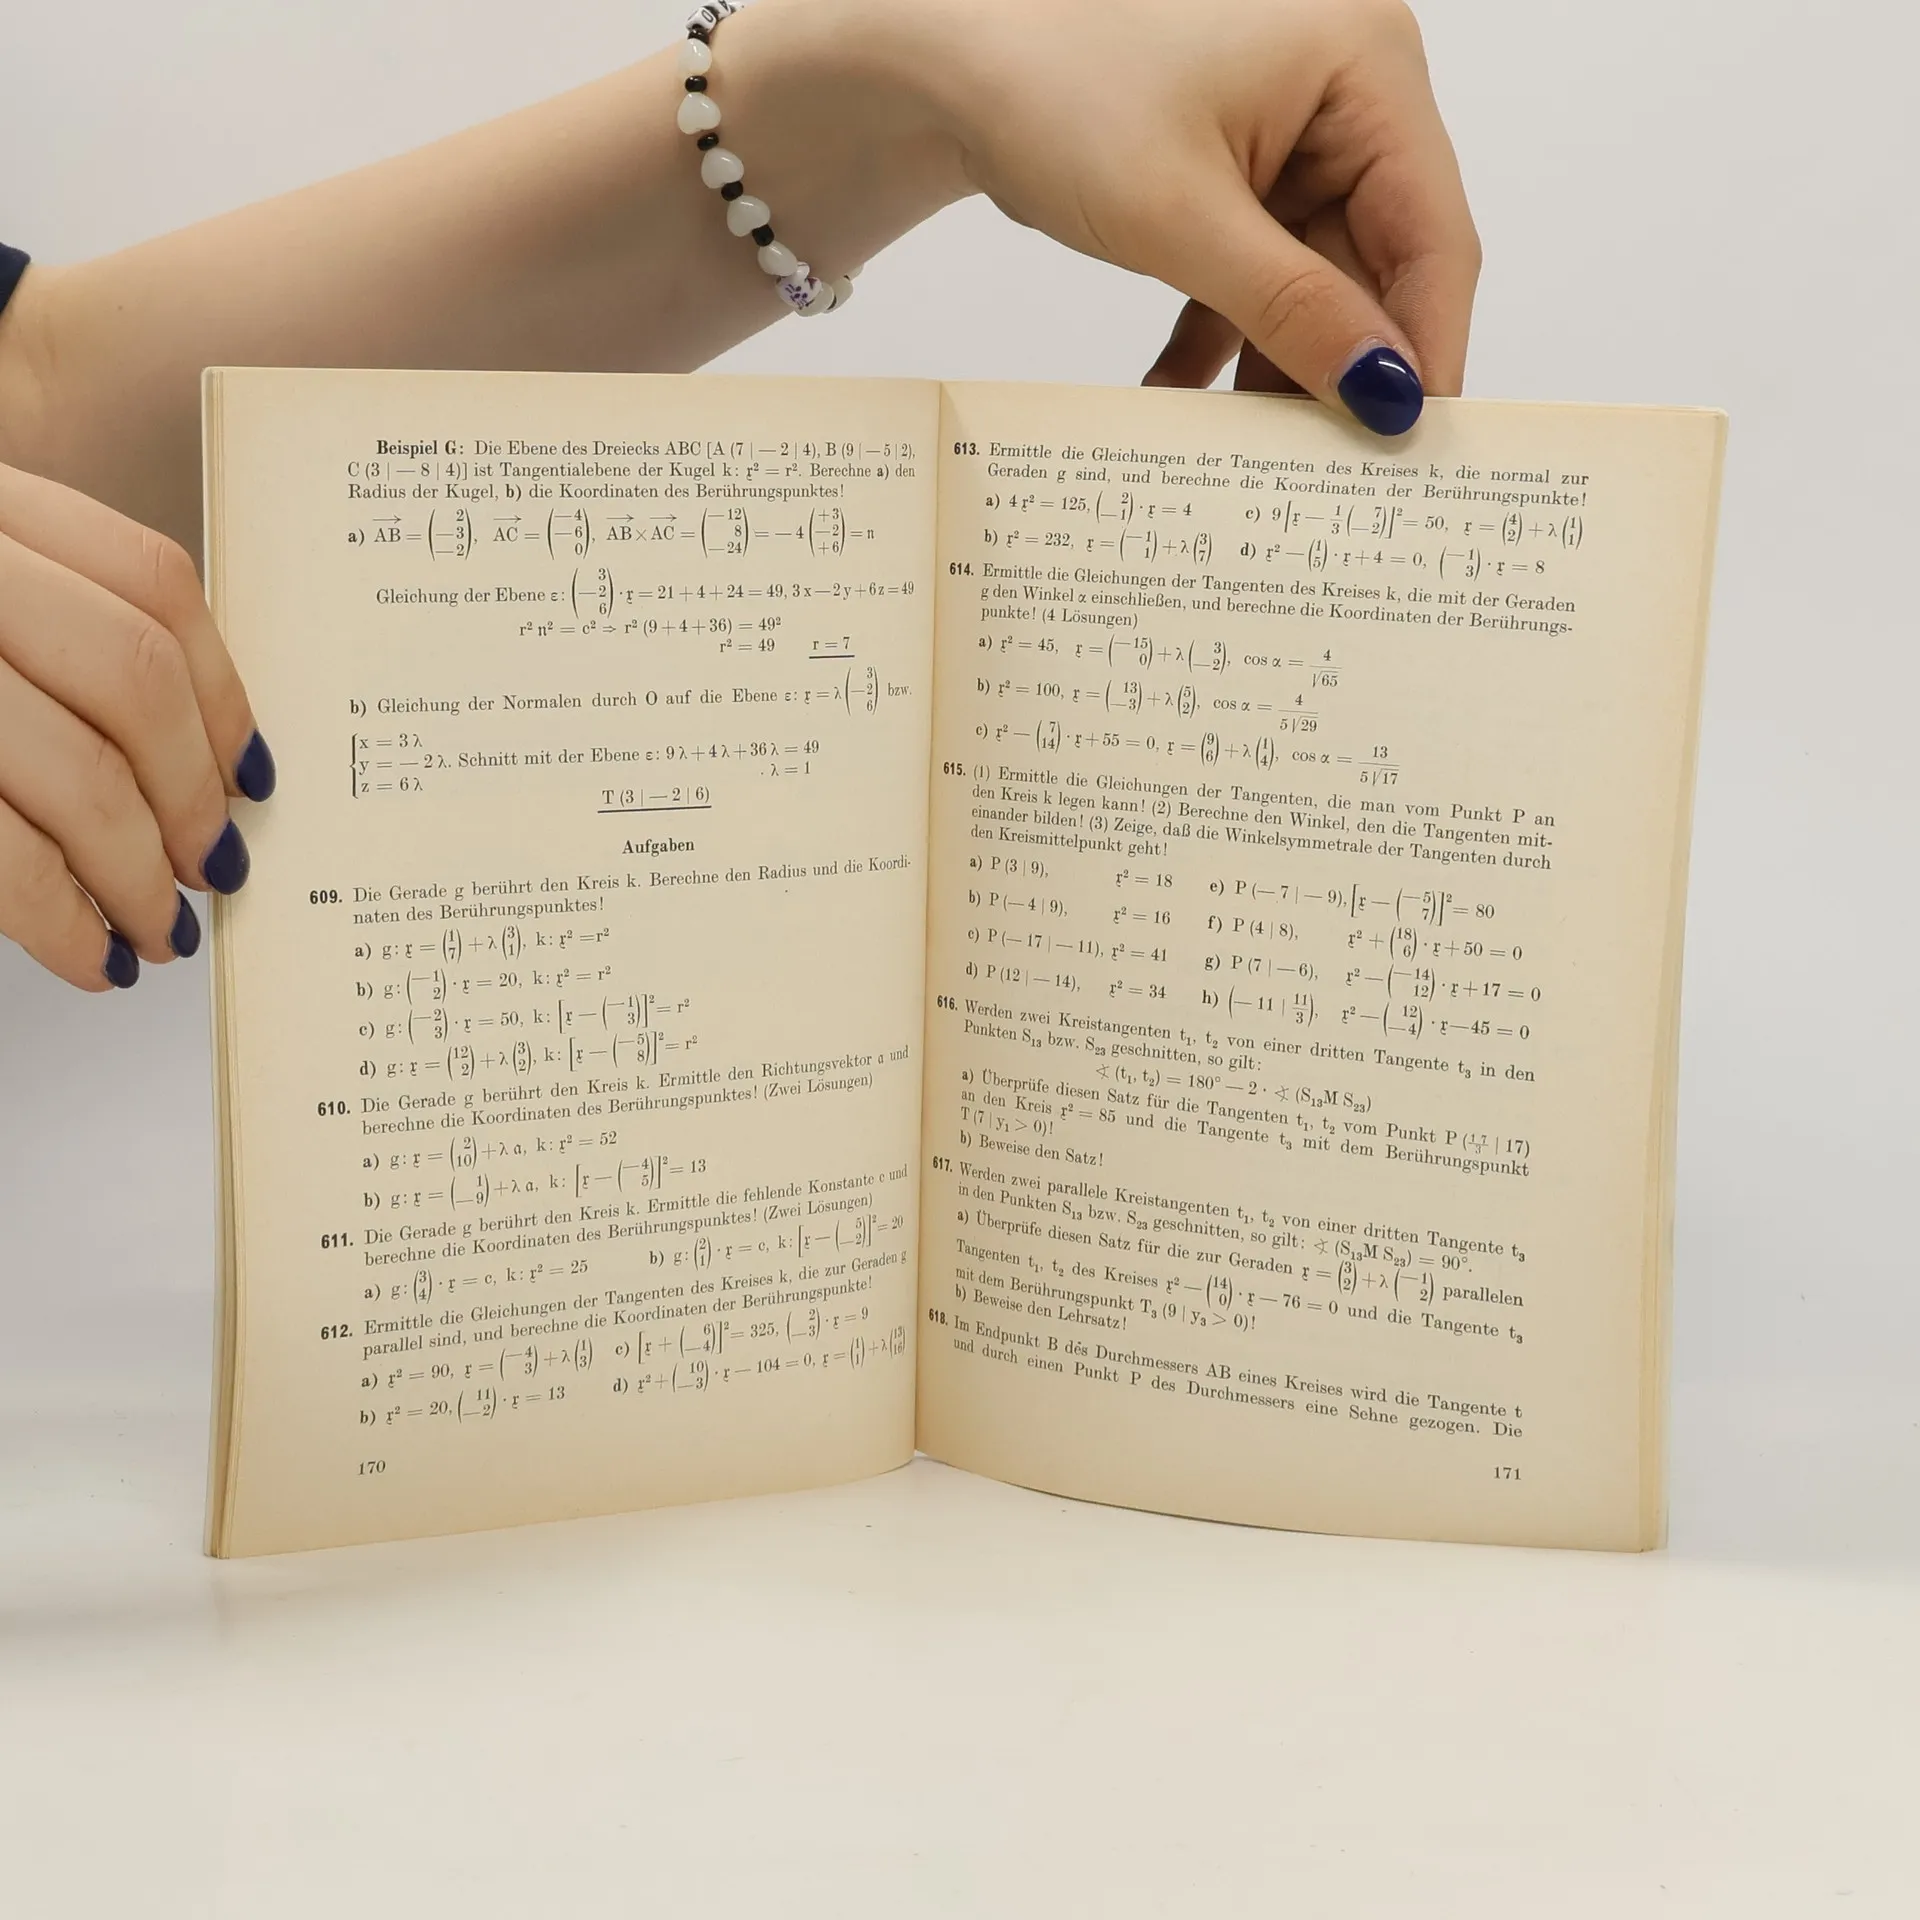 Beispiel G: Die Ebene des Dreiecks ABC [A (7 | — 2 | 4), B (9 | — 5 | 2),
C (3 | — 8 | 4)] ist Tangentialebene der Kugel k: 𝔵² = r². Berechne a) den
Radius der Kugel, b) die Koordinaten des Berührungspunktes!
a) AB = (2 —3 —2), AC = (—4 —6 0), AB × AC = (—12 8 —24) = — 4 (+3 —2 +6) = 𝔫
Gleichung der Ebene ε: (3 —2 6) · 𝔵 = 21 + 4 + 24 = 49, 3 x — 2 y + 6 z = 49
r² 𝔫² = c² ⇒ r² (9 + 4 + 36) = 49²
r² = 49 r = 7
b) Gleichung der Normalen durch O auf die Ebene ε: 𝔵 = λ (3 —2 6) bzw.
x = 3 λ
y = — 2 λ. Schnitt mit der Ebene ε: 9 λ + 4 λ + 36 λ = 49
z = 6 λ λ = 1
T (3 | — 2 | 6)
Aufgaben
609. Die Gerade g berührt den Kreis k. Berechne den Radius und die Koordi-
naten des Berührungspunktes!
a) g: 𝔵 = (1 7) + λ (3 1), k: 𝔵² = r²
b) g: (—1 2) · 𝔵 = 20, k: 𝔵² = r²
c) g: (—2 3) · 𝔵 = 50, k: [𝔵 — (—1 3)]² = r²
d) g: 𝔵 = (12 2) + λ (3 2), k: [𝔵 — (—5 8)]² = r²
610. Die Gerade g berührt den Kreis k. Ermittle den Richtungsvektor 𝔞 und
berechne die Koordinaten des Berührungspunktes! (Zwei Lösungen)
a) g: 𝔵 = (2 10) + λ 𝔞, k: 𝔵² = 52
b) g: 𝔵 = (1 —9) + λ 𝔞, k: [𝔵 — (—4 5)]² = 13
611. Die Gerade g berührt den Kreis k. Ermittle die fehlende Konstante c und
berechne die Koordinaten des Berührungspunktes! (Zwei Lösungen)
a) g: (3 4) · 𝔵 = c, k: 𝔵² = 25 b) g: (2 1) · 𝔵 = c, k: [𝔵 — (5 —2)]² = 20
612. Ermittle die Gleichungen der Tangenten des Kreises k, die zur Geraden g
parallel sind, und berechne die Koordinaten der Berührungspunkte!
a) 𝔵² = 90, 𝔵 = (—4 3) + λ (1 3) c) [𝔵 + (6 —4)]² = 325, (2 —3) · 𝔵 = 9
b) 𝔵² = 20, (11 —2) · 𝔵 = 13 d) 𝔵² + (10 —3) · 𝔵 — 104 = 0, 𝔵 = (1 1) + λ (13 16)
170
613. Ermittle die Gleichungen der Tangenten des Kreises k, die normal zur
Geraden g sind, und berechne die Koordinaten der Berührungspunkte!
a) 4 𝔵² = 125, (2 —1) · 𝔵 = 4 c) 9 [𝔵 — 1/3 (7 —2)]² = 50, 𝔵 = (4 2) + λ (1 1)
b) 𝔵² = 232, 𝔵 = (—1 1) + λ (3 7) d) 𝔵² — (1 5) · 𝔵 + 4 = 0, (—1 3) · 𝔵 = 8
614. Ermittle die Gleichungen der Tangenten des Kreises k, die mit der Geraden
g den Winkel α einschließen, und berechne die Koordinaten der Berührungs-
punkte! (4 Lösungen)
a) 𝔵² = 45, 𝔵 = (—15 0) + λ (3 —2), cos α = 4/√65
b) 𝔵² = 100, 𝔵 = (13 —3) + λ (5 2), cos α = 4/5√29
c) 𝔵² — (7 14) · 𝔵 + 55 = 0, 𝔵 = (9 6) + λ (1 4), cos α = 13/5√17
615. (1) Ermittle die Gleichungen der Tangenten, die man vom Punkt P an
den Kreis k legen kann! (2) Berechne den Winkel, den die Tangenten mit-
einander bilden! (3) Zeige, daß die Winkelsymmetrale der Tangenten durch
den Kreismittelpunkt geht!
a) P (3 | 9), 𝔵² = 18 e) P (— 7 | — 9), [𝔵 — (—5 7)]² = 80
b) P (— 4 | 9), 𝔵² = 16 f) P (4 | 8), 𝔵² + (18 6) · 𝔵 + 50 = 0
c) P (— 17 | — 11), 𝔵² = 41 g) P (7 | — 6), 𝔵² — (—14 12) · 𝔵 + 17 = 0
d) P (12 | — 14), 𝔵² = 34 h) (— 11 | 11/3), 𝔵² — (12 —4) · 𝔵 — 45 = 0
616. Werden zwei Kreistangenten t₁, t₂ von einer dritten Tangente t₃ in den
Punkten S₁₃ bzw. S₂₃ geschnitten, so gilt:
∢ (t₁, t₂) = 180° — 2 · ∢ (S₁₃M S₂₃)
a) Überprüfe diesen Satz für die Tangenten t₁, t₂ vom Punkt P (17/3 | 17)
an den Kreis 𝔵² = 85 und die Tangente t₃ mit dem Berührungspunkt
T (7 | y₁ > 0)!
b) Beweise den Satz!
617. Werden zwei parallele Kreistangenten t₁, t₂ von einer dritten Tangente t₃
in den Punkten S₁₃ bzw. S₂₃ geschnitten, so gilt: ∢ (S₁₃M S₂₃) = 90°.
a) Überprüfe diesen Satz für die zur Geraden 𝔵 = (3 2) + λ (—1 2) parallelen
Tangenten t₁, t₂ des Kreises 𝔵² — (14 0) · 𝔵 — 76 = 0 und die Tangente t₃
mit dem Berührungspunkt T₃ (9 | y₃ > 0)!
b) Beweise den Lehrsatz!
618. Im Endpunkt B des Durchmessers AB eines Kreises wird die Tangente t
und durch einen Punkt P des Durchmessers eine Sehne gezogen. Die
171